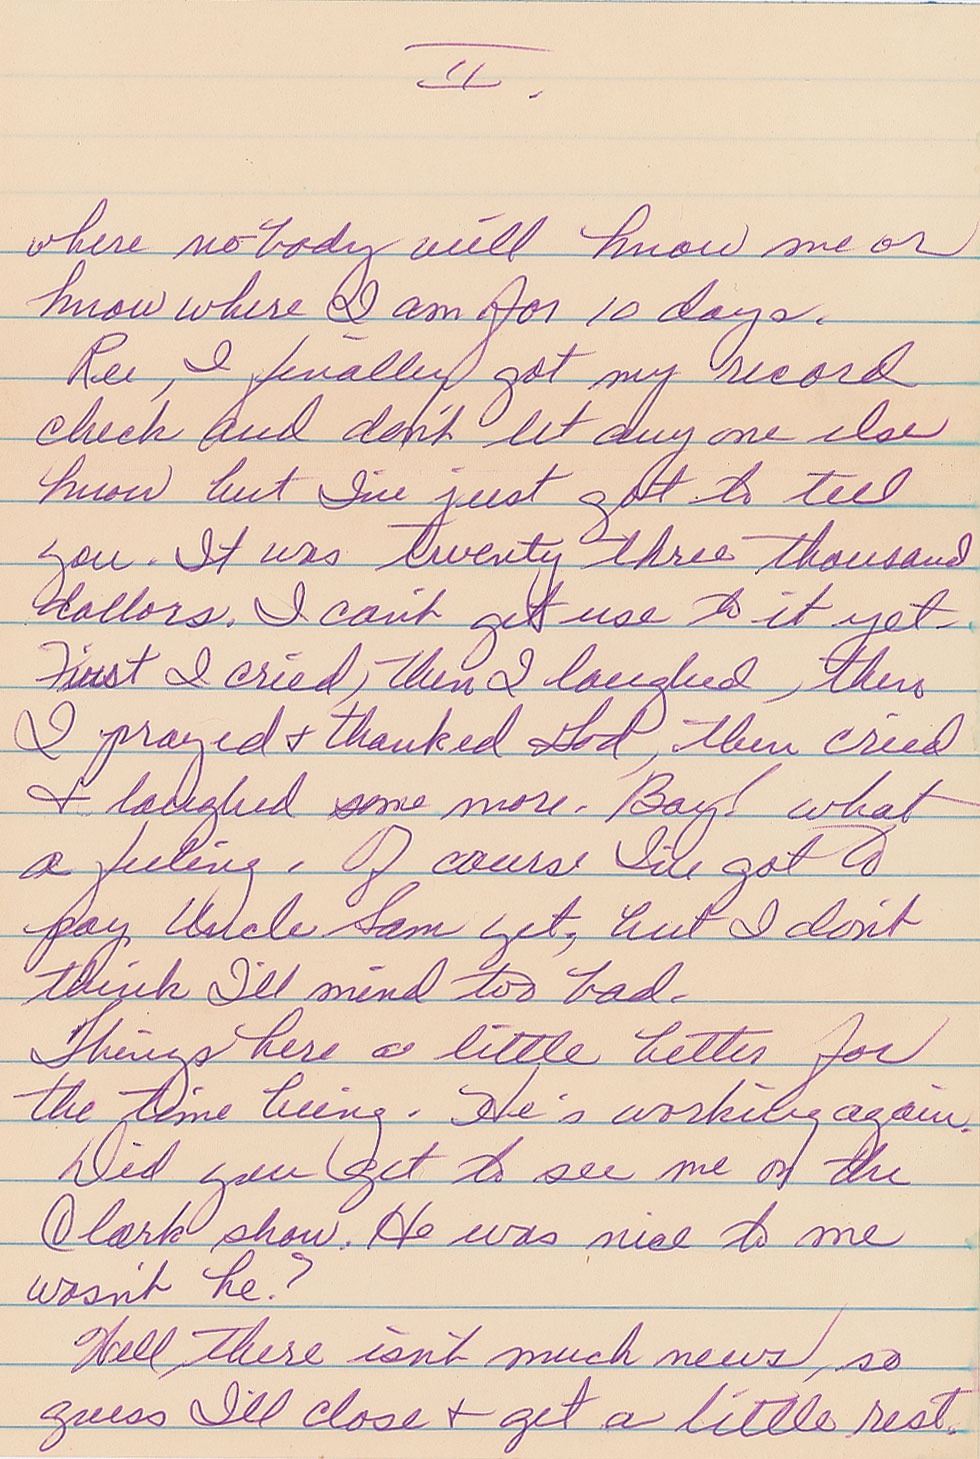 II.
where nobody will know me or
know where I am for 10 days.
Ree, I finally got my record
check and don't let anyone else
know but I've just got to tell
you. It was twenty three thousand
dollars. I can't get use to it yet.
First I cried, then I laughed, then
I prayed & thanked God, then cried
& laughed some more. Boy! what
a feeling. Of course I've got to
pay Uncle Sam yet, but I don't
think I'll mind too bad.
Things here a little better for
the time being. He's working again.
Did you get to see me on the
Clark show. He was nice to me
wasn't he?
Well, there isn't much news, so
guess I'll close & get a little rest.